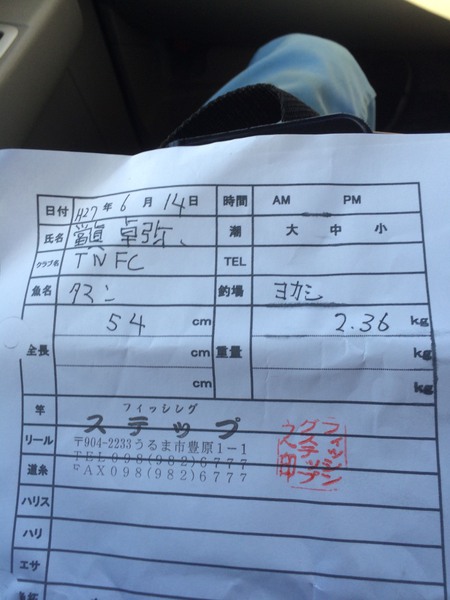 日付 H27年 6月 14日 時間 AM PM
氏名 卓弥 潮 大 中 小
クラブ名 TNFC TEL
魚名 タマン 釣場 ヨカシ
54 cm 2.36 kg
全長 cm 重量 kg
cm kg
竿 フィッシング
ステップ
リール 〒904-2233うるま市豊原1-1
TEL098(982)6777
道糸 FAX098(982)6777
フィッシン
グステップ
之印
ハリス
ハリ
エサ